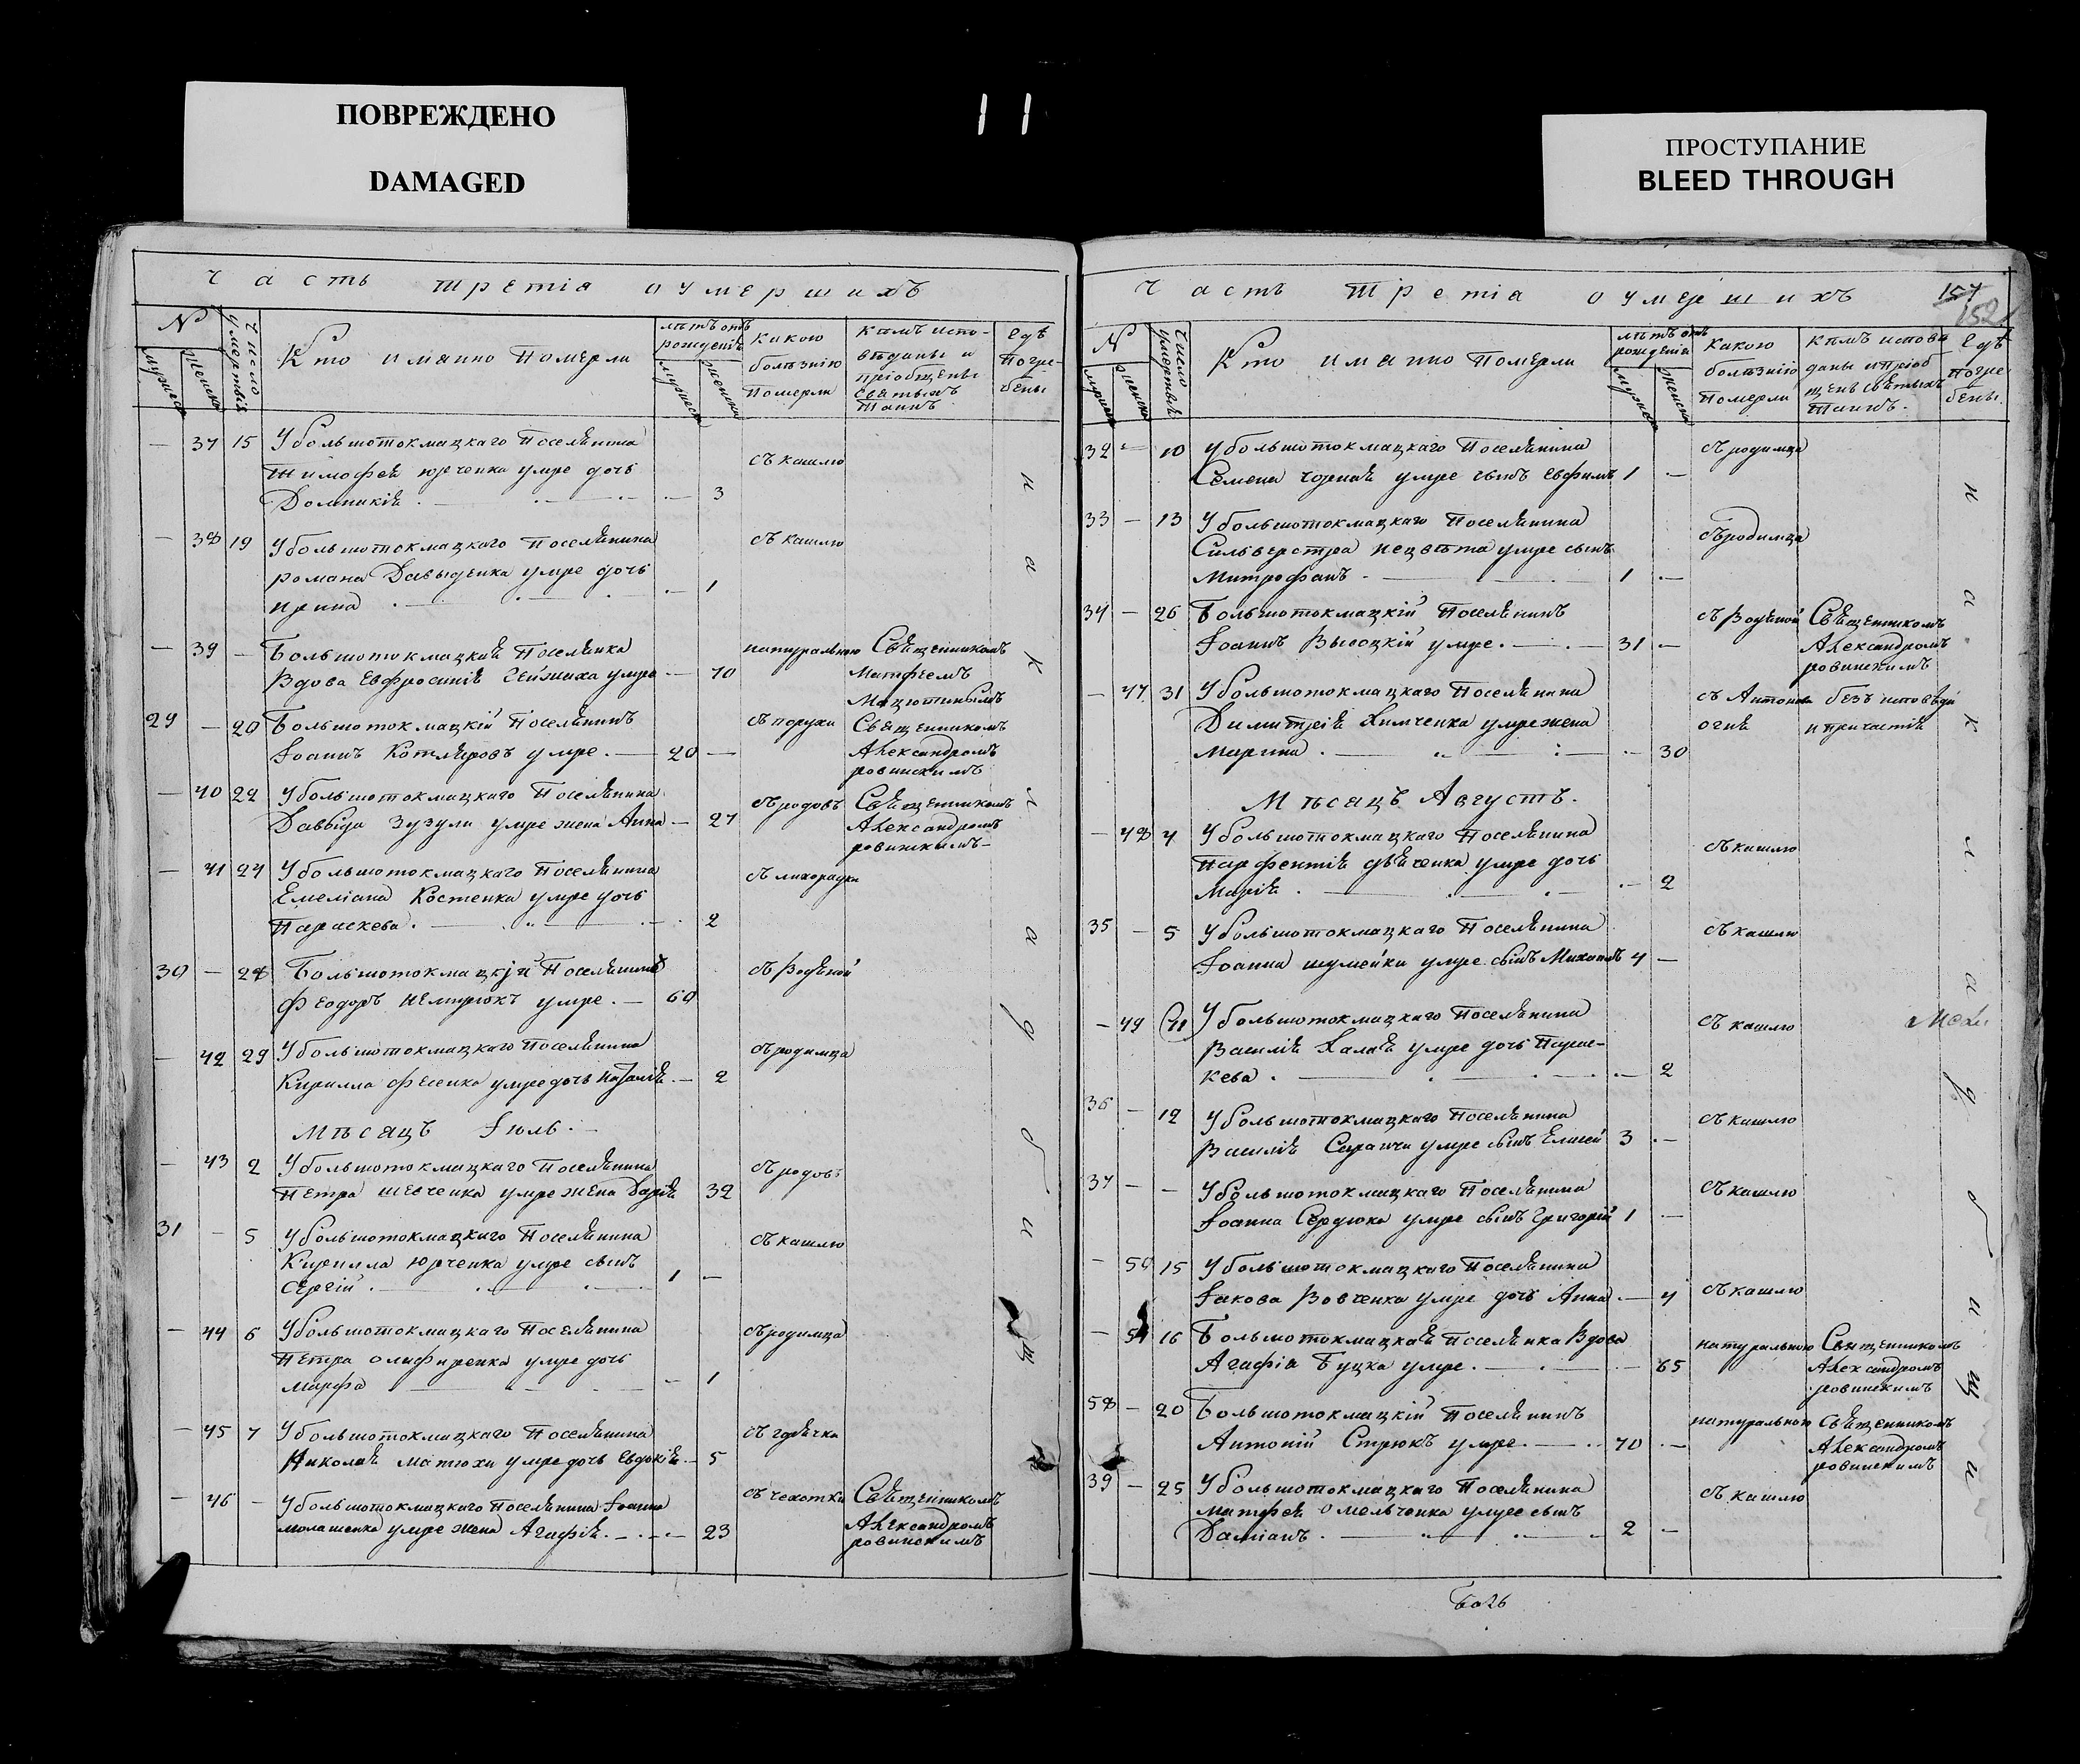 ПОВРЕЖДЕНО
DAMAGED
11
ПРОСТУПАНИЕ
BLEED THROUGH
Часть третія оумершихъ
№
мужеска
женска
Число умертвія
Кто имянно Померли
лѣтъ отъ рожденія
мужеска
женска
Какою
болѣзнію
Померли
Кѣмъ испо-
вѣданы и
пріобщены
святыхъ
Таинъ
Гдѣ
Погре
бены
— 37 15 У большотокмацкаго Поселянина
Тимофея Юрченка умре дочь
Домникія — 3 съ кашлю
— 38 19 У большотокмацкаго Поселянина
романа Давыденка умре дочь
ирина — 1 съ кашлю
— 39 — Большотокмацкая Поселянка
Вдова Евфросинія умре — 70 натуральною Священникомъ
Матфеемъ
29 — 20 Большотокмацкій Поселянинъ
Іоаннъ Котляровъ умре. — 20 — Священникомъ
Александромъ
ровинскимъ
— 40 22 У большотокмацкаго Поселянина
Давыда Зузули умре жена Анна — 27 съ родовъ Священникомъ
Александромъ
ровинскимъ
— 41 24 У большотокмацкаго Поселянина
Емеліана Костенка умре дочь
Параскева. — 2 съ лихорадки
30 — 28 Большотокмацкій Поселянинъ
Феодоръ умре. — 60 съ Водяной
— 42 29 У большотокмацкаго Поселянина
Кирилла Фесенка умре дочь Наталія — 2 съ родимца
Мѣсяцъ Іюль.
— 43 2 У большотокмацкаго Поселянина
Петра Шевченка умре жена Дарія 32 съ родовъ
31 — 5 У большотокмацкаго Поселянина
Кирилла Юрченка умре сынъ
Сергій. 1 — съ кашлю
— 44 6 У большотокмацкаго Поселянина
Петра Олифиренка умре дочь
Марфа — 1 съ родимца
— 45 7 У большотокмацкаго Поселянина
Николая Матюхи умре дочь Евдокія — 5
— 46 — У большотокмацкаго Поселянина Іоанна
умре жена Агафія. — 23 съ чехотки Священникомъ
Александромъ
ровинскимъ
на кладбищ
Часть Третія оумершихъ
157
152
№
мужеска
женска
Число умертвія
Кто имянно Померли
лѣтъ отъ рожденія
мужеска
женска
Какою
болѣзнію
Померли
Кѣмъ исповѣ
даны и пріоб
щены святыхъ
Таинъ.
Гдѣ
Погре
бены.
32 — 10 У большотокмацкаго Поселянина
Семена Чорная умре сынъ Евфимъ 1 — съ родимца
33 — 13 У большотокмацкаго Поселянина
Сильверстра Нецвѣта умре сынъ
Митрофанъ. 1 — съ родимца
34 — 26 Большотокмацкій Поселянинъ
Іоаннъ Высоцкій умре. 31 — съ Водяной Священникомъ
Александромъ
ровинскимъ
— 47 31 У большотокмацкаго Поселянина
Димитрія Химченка умре жена
Марина — 30 съ Антонова огня безъ исповѣди
и причастія
Мѣсяцъ Августъ.
— 48 4 У большотокмацкаго Поселянина
Парфентія умре дочь
Марія. — 2 съ кашлю
35 — 5 У большотокмацкаго Поселянина
Іоанна Шумейки умре сынъ Михаилъ 4 — съ кашлю
— 49 11 У большотокмацкаго Поселянина
Василія Халая умре дочь Парас-
кева. — 2 съ кашлю
36 — 12 У большотокмацкаго Поселянина
Василія Саранчи умре сынъ Елисей 3 — съ кашлю
37 — — У большотокмацкаго Поселянина
Іоанна Сердюка умре сынъ Григорій 1 — съ кашлю
— 50 15 У большотокмацкаго Поселянина
Іакова Вовченка умре дочь Анна — 4 съ кашлю
— 51 16 Большотокмацкая Поселянка Вдова
Агафія Буцка умре. — 65 натуральною Священникомъ
Александромъ
ровинскимъ
38 — 20 Большотокмацкій Поселянинъ
Антоній Стрюкъ умре. 70 — натуральною Священникомъ
Александромъ
ровинскимъ
39 — 25 У большотокмацкаго Поселянина
Матфея Омельченка умре сынъ
Даміанъ. 2 — съ кашлю
на кладбищи